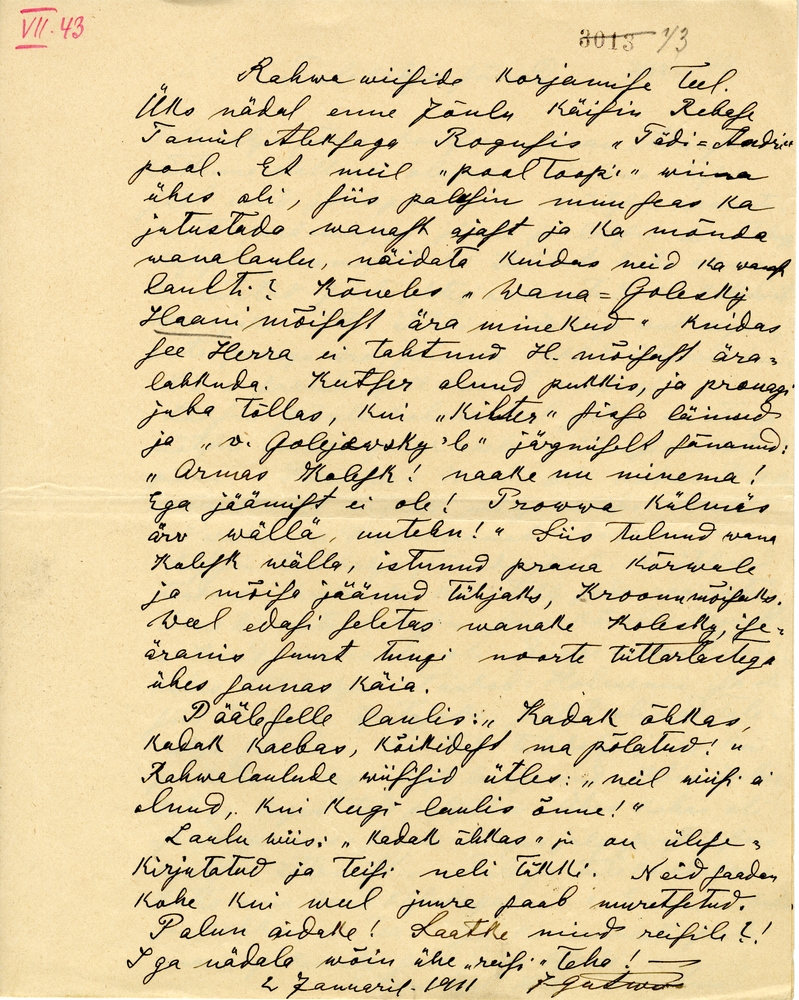 VII.43
3013 43
Rahwa wiiside korjamise teel.
Üks nädal enne Jõulu käisin Rebase
Tamul Aleksaga Rogusis „Tädi=Andri“
pool. Et meil „pool toopi“ wiina
ühes oli, siis palusin muu seas ka
jutustada wanast ajast ja ka mõnda
wanalaulu, näidata kuidas neid ka wanast
laulti? Kõneles „Wana=Golesky
Haani mõisast ära minekud“ kuidas
see Herra ei tahtnud H. mõisast ära=
lahkuda. Kutser olnud pukkis, ja prouagi
juba tõllas, kui „Kilter“ sisse läinud
ja „v. Golejewsky'le“ järgmiselt sõnanud:
„Armas Kolesk! naake nu minema!
Ega jäämist ei ole! Prowwa külmäs
ärr wällä, uuteln!“ Siis tulnud wana
Kolesk wälla, istunud praua kõrwale
ja mõisa jäänud tühjaks, Kroonumõisaks.
Weel edasi seletas wanake Kolesky, ise=
äranis suurt tungi noorte tüttarlastega
ühes saunas käia.
Pääle selle laulis: „Kadak õhkas,
kadak kaebas, kõikidest ma põlatud!“
Rahwalaulude wiisisid ütles: „neil wiisi ei
olnud, kui keegi laulis õnne!“
Laulu wiis: „kadak õhkas“ ju on ülese=
kirjutatud ja teisi neli tükki. Neid saadan
kohe kui weel juure saab muretsetud.
Palun aidake! Saatke mind reisile?!
Iga nädala wõin ühe „reisi“ teha!
2 Januaril. 1911